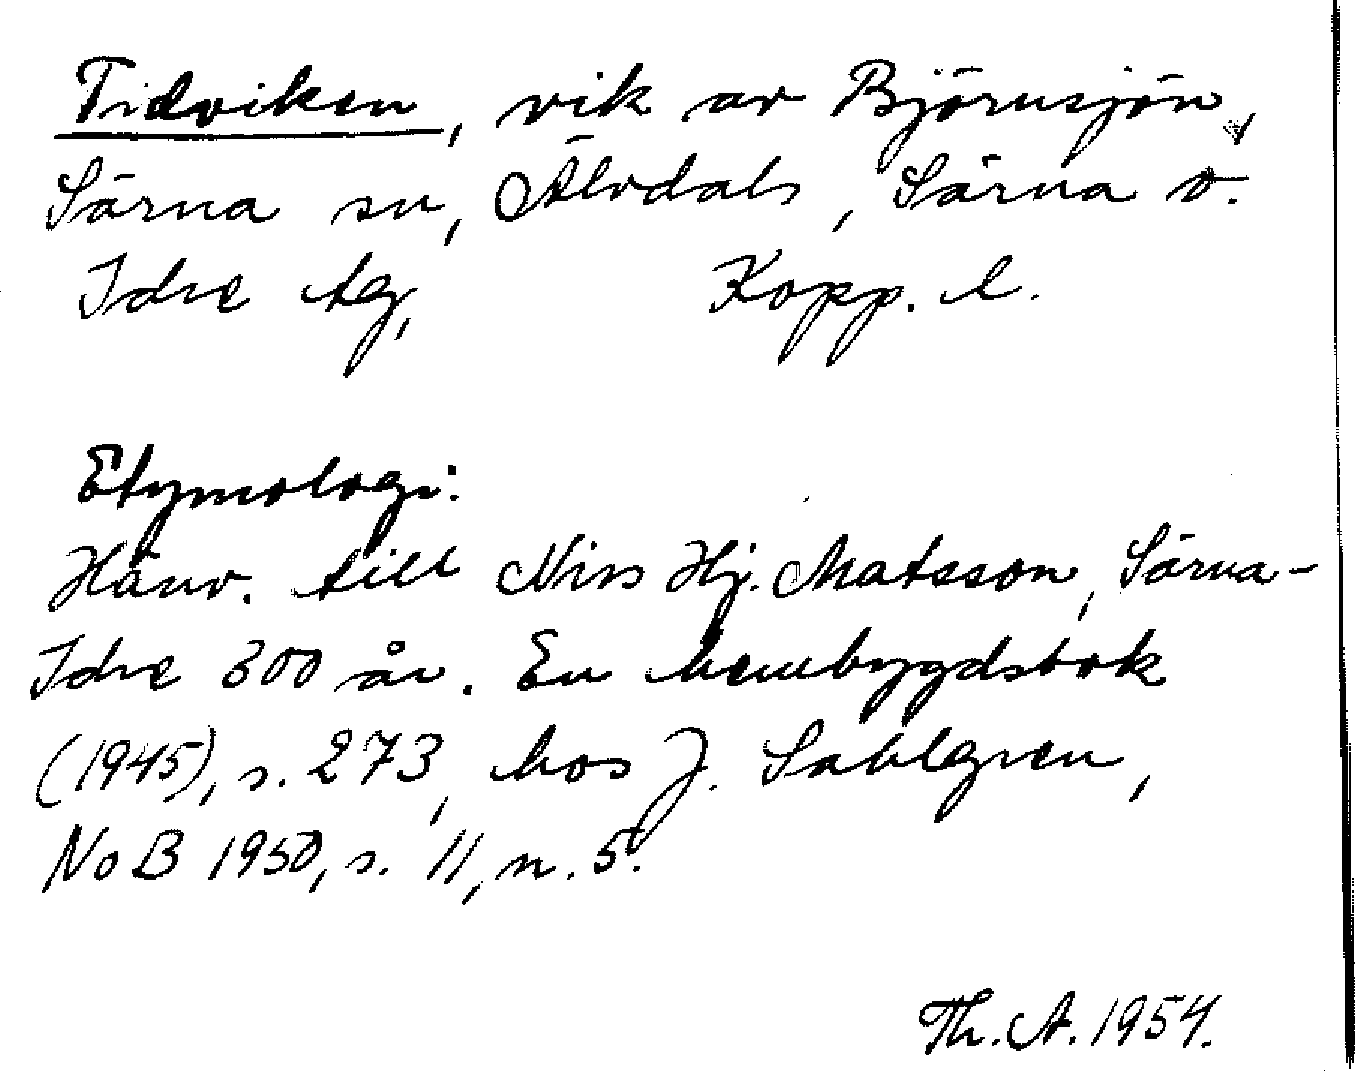 Tidviken, vik av Björnsjön,
Särna sn, Älvdals, Särna o.
Idre tg, Kopp. l.
Etymologi:
Hänv. till Niss Hj. Matsson, Särna-
Idre 300 år. En hembygdsbok
(1945), s. 273, hos J. Sahlgren,
NoB 1950, s. 11, n. 5.
Th. A. 1954.